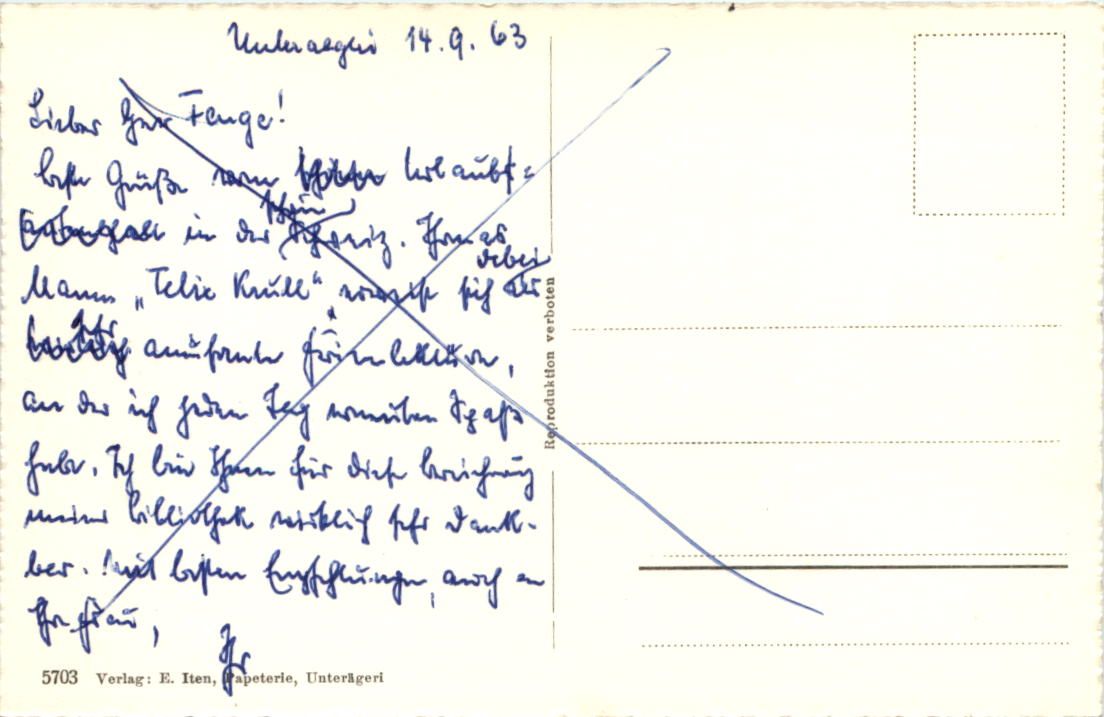 Unteraegeri 14.9.63
Lieber Herr Fenge!
beste Grüße vom Urlaubs=
in der Schweiz. Thomas
schön
Mann „Felix Krull“, erweist sich als
dabei
sehr
amüsante Ferienlektüre,
an der ich jeden Tag erneuten Spaß
habe. Ich bin Ihnen für diese Bereicherung
meiner Bibliothek wirklich sehr dank-
bar. Mit besten Empfehlungen, auch an
Ihre Frau,
Ihr
5703 Verlag: E. Iten, Papeterie, Unterägeri
Reproduktion verboten